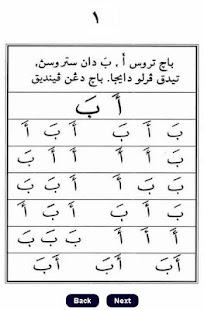 ١
باچ تروس أَ ، بَ دان ستروسڽ،
تيدق ڤرلو دايجا. باچ دڠن ڤينديق
أَ بَ
بَ أَ بَ أَ بَ أَ
أَ أَ بَ أَ أَ بَ
بَ بَ أَ بَ بَ أَ
أَ بَ أَ بَ أَ بَ
أَ أَ أَ بَ بَ بَ
أَبَ أَبَ أَبَ
Back Next